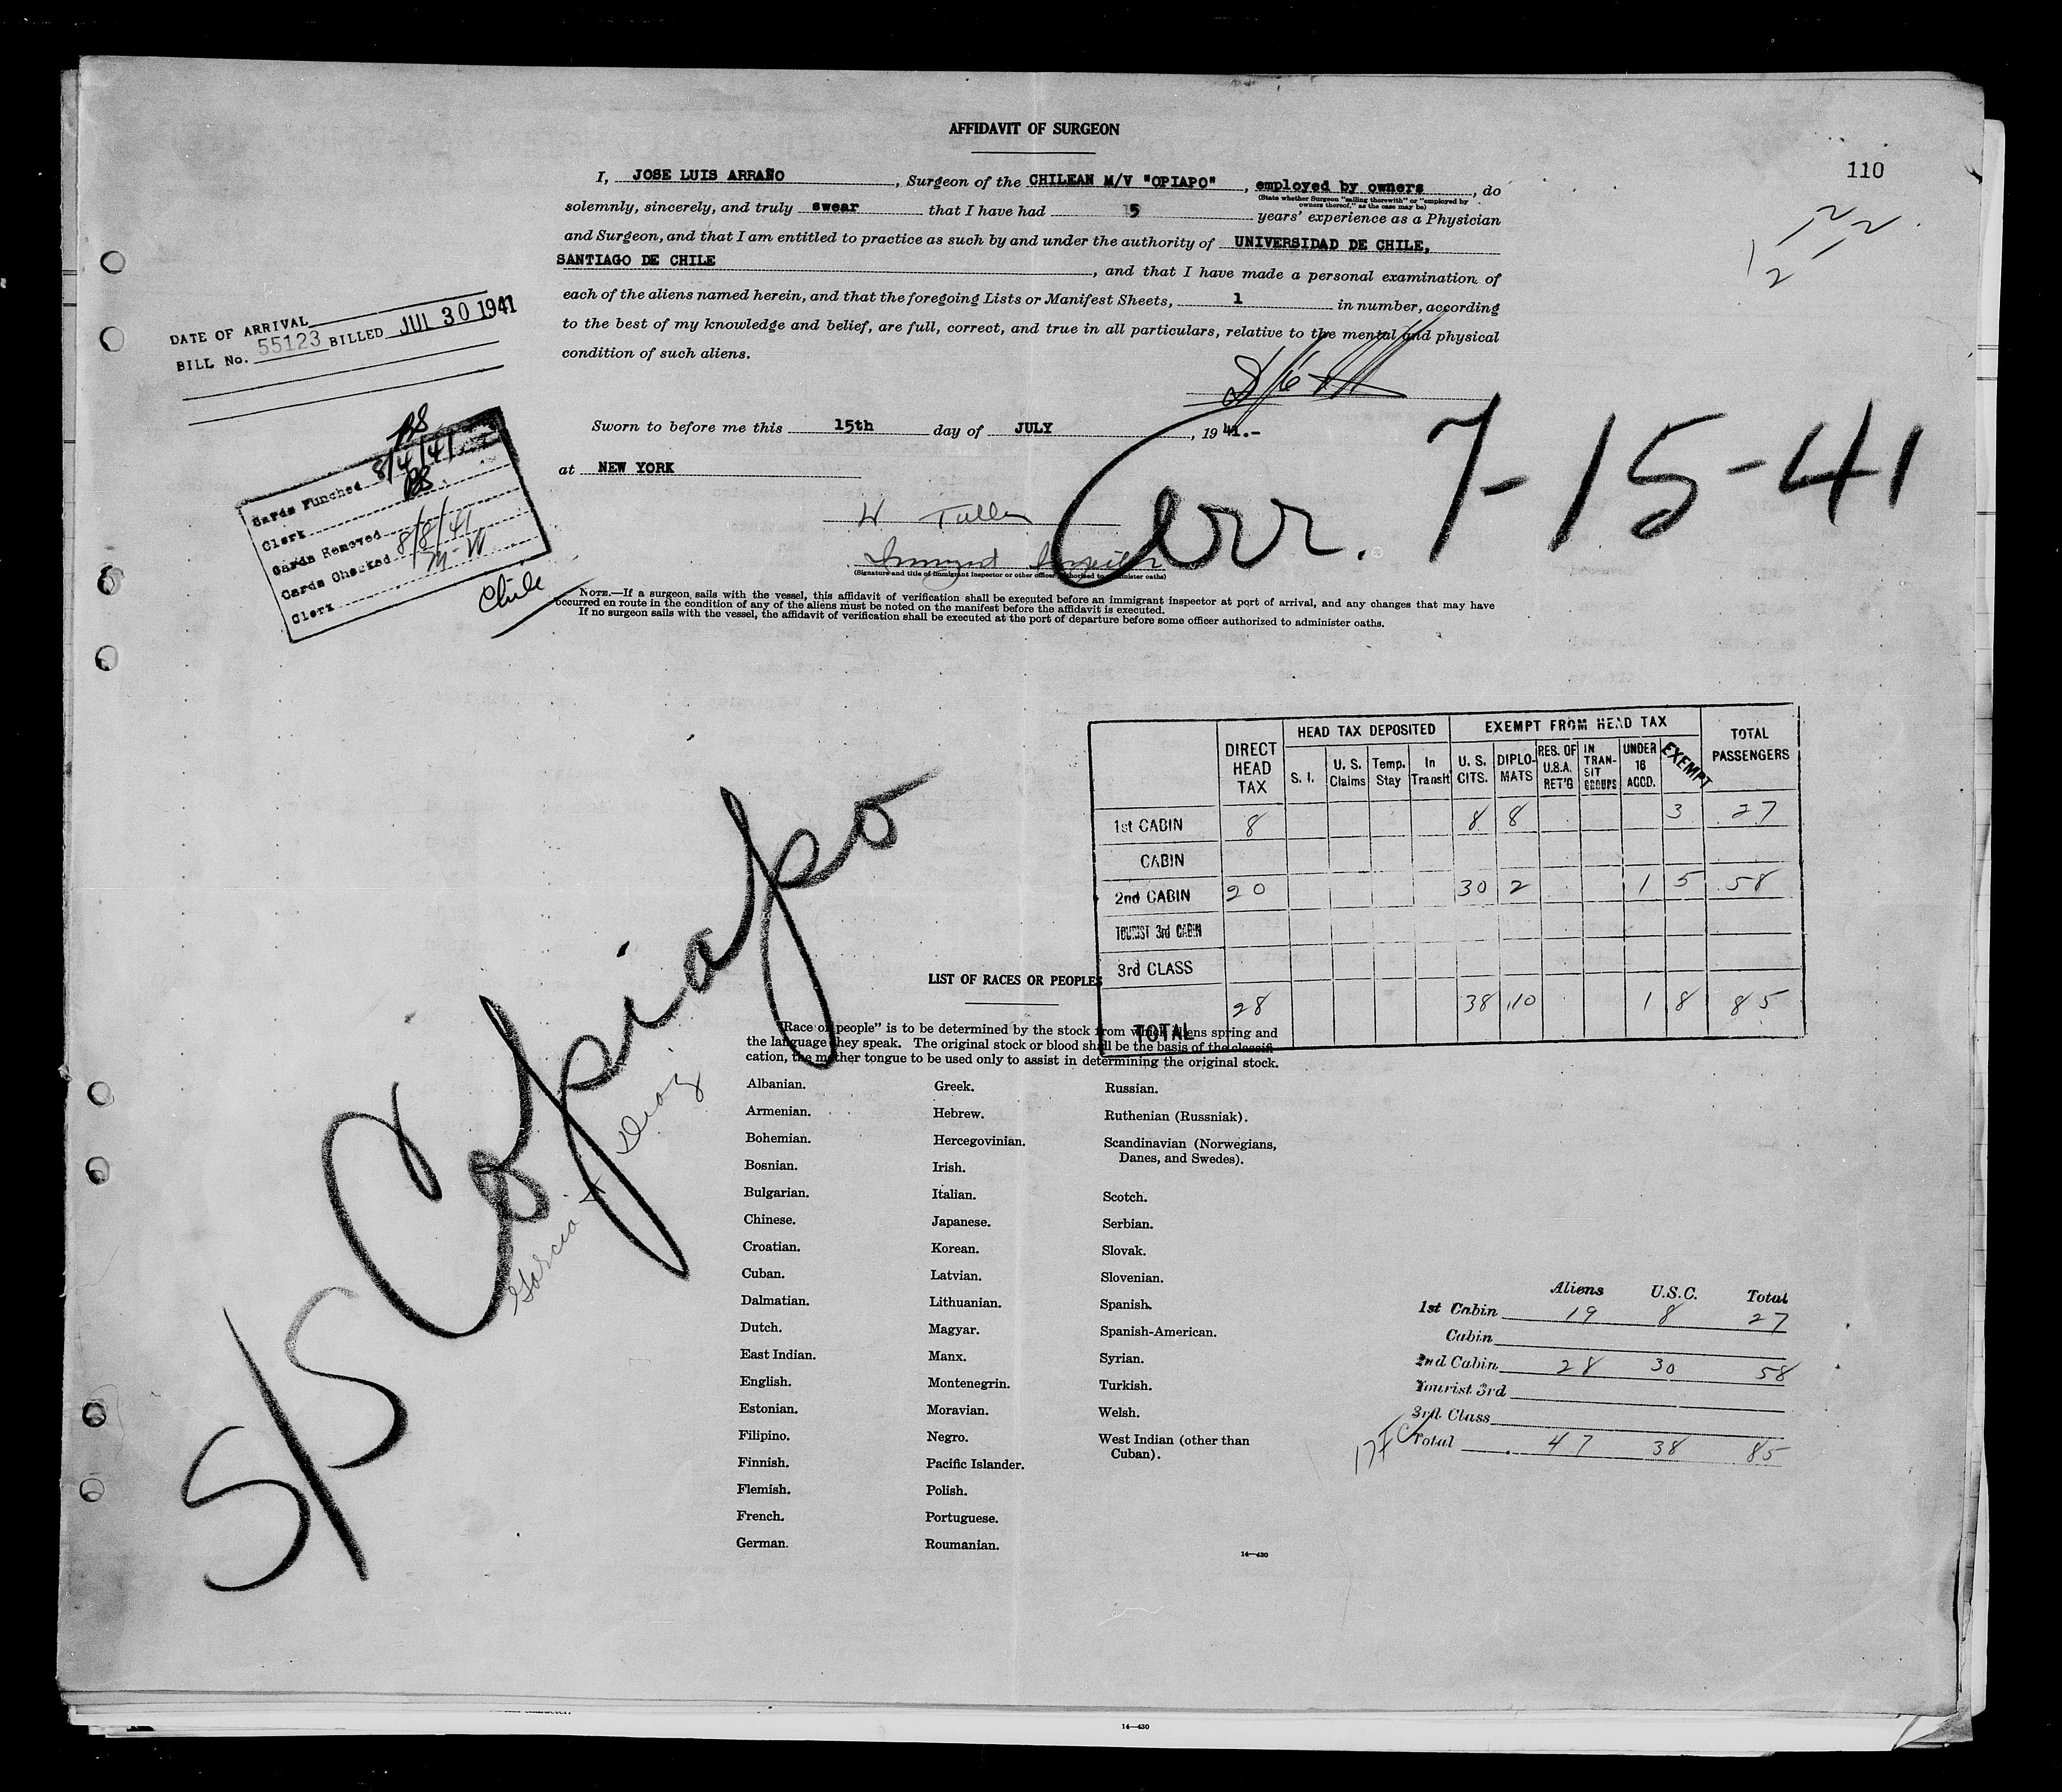 AFFIDAVIT OF SURGEON
110
I, JOSE LUIS ARRAÑO, Surgeon of the CHILEAN M/V "OPIAPO", employed by owners, do
(State whether Surgeon "sailing therewith" or "employed by
owners thereof," as the case may be)
solemnly, sincerely, and truly swear that I have had 5 years' experience as a Physician
and Surgeon, and that I am entitled to practice as such by and under the authority of UNIVERSIDAD DE CHILE,
SANTIAGO DE CHILE, and that I have made a personal examination of
each of the aliens named herein, and that the foregoing Lists or Manifest Sheets, 1 in number, according
to the best of my knowledge and belief, are full, correct, and true in all particulars, relative to the mental and physical
condition of such aliens.
DATE OF ARRIVAL
BILL No. 55123 BILLED JUL 30 1941
Sworn to before me this 15th day of JULY, 1941.-
at NEW YORK
Arr. 7-15-41
Cards Punched 8/4/41
Clerk
Cards Removed
Cards Checked 8/8/41
Clerk
Chile
(Signature and title of immigrant inspector or other officer authorized to administer oaths)
NOTE.—If a surgeon sails with the vessel, this affidavit of verification shall be executed before an immigrant inspector at port of arrival, and any changes that may have
occurred en route in the condition of any of the aliens must be noted on the manifest before the affidavit is executed.
If no surgeon sails with the vessel, the affidavit of verification shall be executed at the port of departure before some officer authorized to administer oaths.
DIRECT HEAD TAX HEAD TAX DEPOSITED EXEMPT FROM HEAD TAX TOTAL PASSENGERS
S. I. U. S. Claims Temp. Stay In Transit U. S. CITS. DIPLO-MATS RES. OF U.S.A. RET'G IN TRAN-SIT GROUPS UNDER 16 ACCD. EXEMPT
1st CABIN 8 8 8 3 27
CABIN
2nd CABIN 20 30 2 1 5 58
TOURIST 3rd CABIN
3rd CLASS
TOTAL 28 38 10 1 8 85
S/S Copiapo
Garcia & Diaz
LIST OF RACES OR PEOPLES
"Race or people" is to be determined by the stock from which aliens spring and
the language they speak. The original stock or blood shall be the basis of the classifi-
cation, the mother tongue to be used only to assist in determining the original stock.
Albanian.
Armenian.
Bohemian.
Bosnian.
Bulgarian.
Chinese.
Croatian.
Cuban.
Dalmatian.
Dutch.
East Indian.
English.
Estonian.
Filipino.
Finnish.
Flemish.
French.
German.
Greek.
Hebrew.
Hercegovinian.
Irish.
Italian.
Japanese.
Korean.
Latvian.
Lithuanian.
Magyar.
Manx.
Montenegrin.
Moravian.
Negro.
Pacific Islander.
Polish.
Portuguese.
Roumanian.
Russian.
Ruthenian (Russniak).
Scandinavian (Norwegians,
Danes, and Swedes).
Scotch.
Serbian.
Slovak.
Slovenian.
Spanish.
Spanish-American.
Syrian.
Turkish.
Welsh.
West Indian (other than
Cuban).
14—430
Aliens U.S.C. Total
1st Cabin 19 8 27
Cabin
2nd Cabin 28 30 58
Tourist 3rd
3rd. Class
Total 47 38 85
14—430